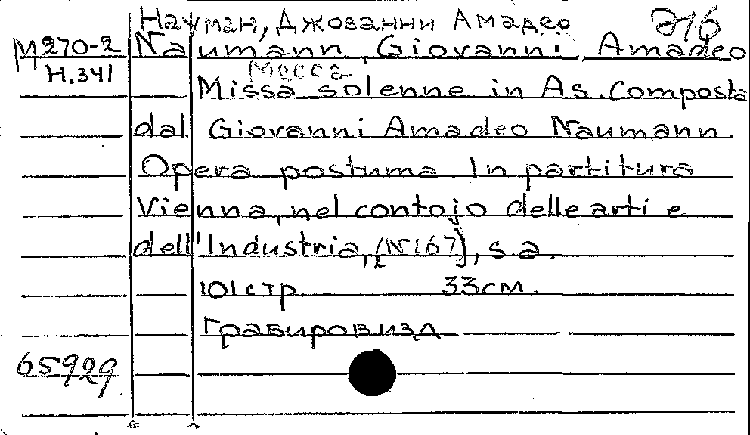 Науман, Джованни Амадео 216
М270-2 Naumann, Giovanni Amadeo
Н.341 Месса
Missa solenne in As. Composta
dal Giovanni Amadeo Naumann.
Opera postuma In partitura
Vienna, nel contojo delle arti e
dell'Industria, [N167], s.a.
101стр. 33см.
Гравир. изд
65929